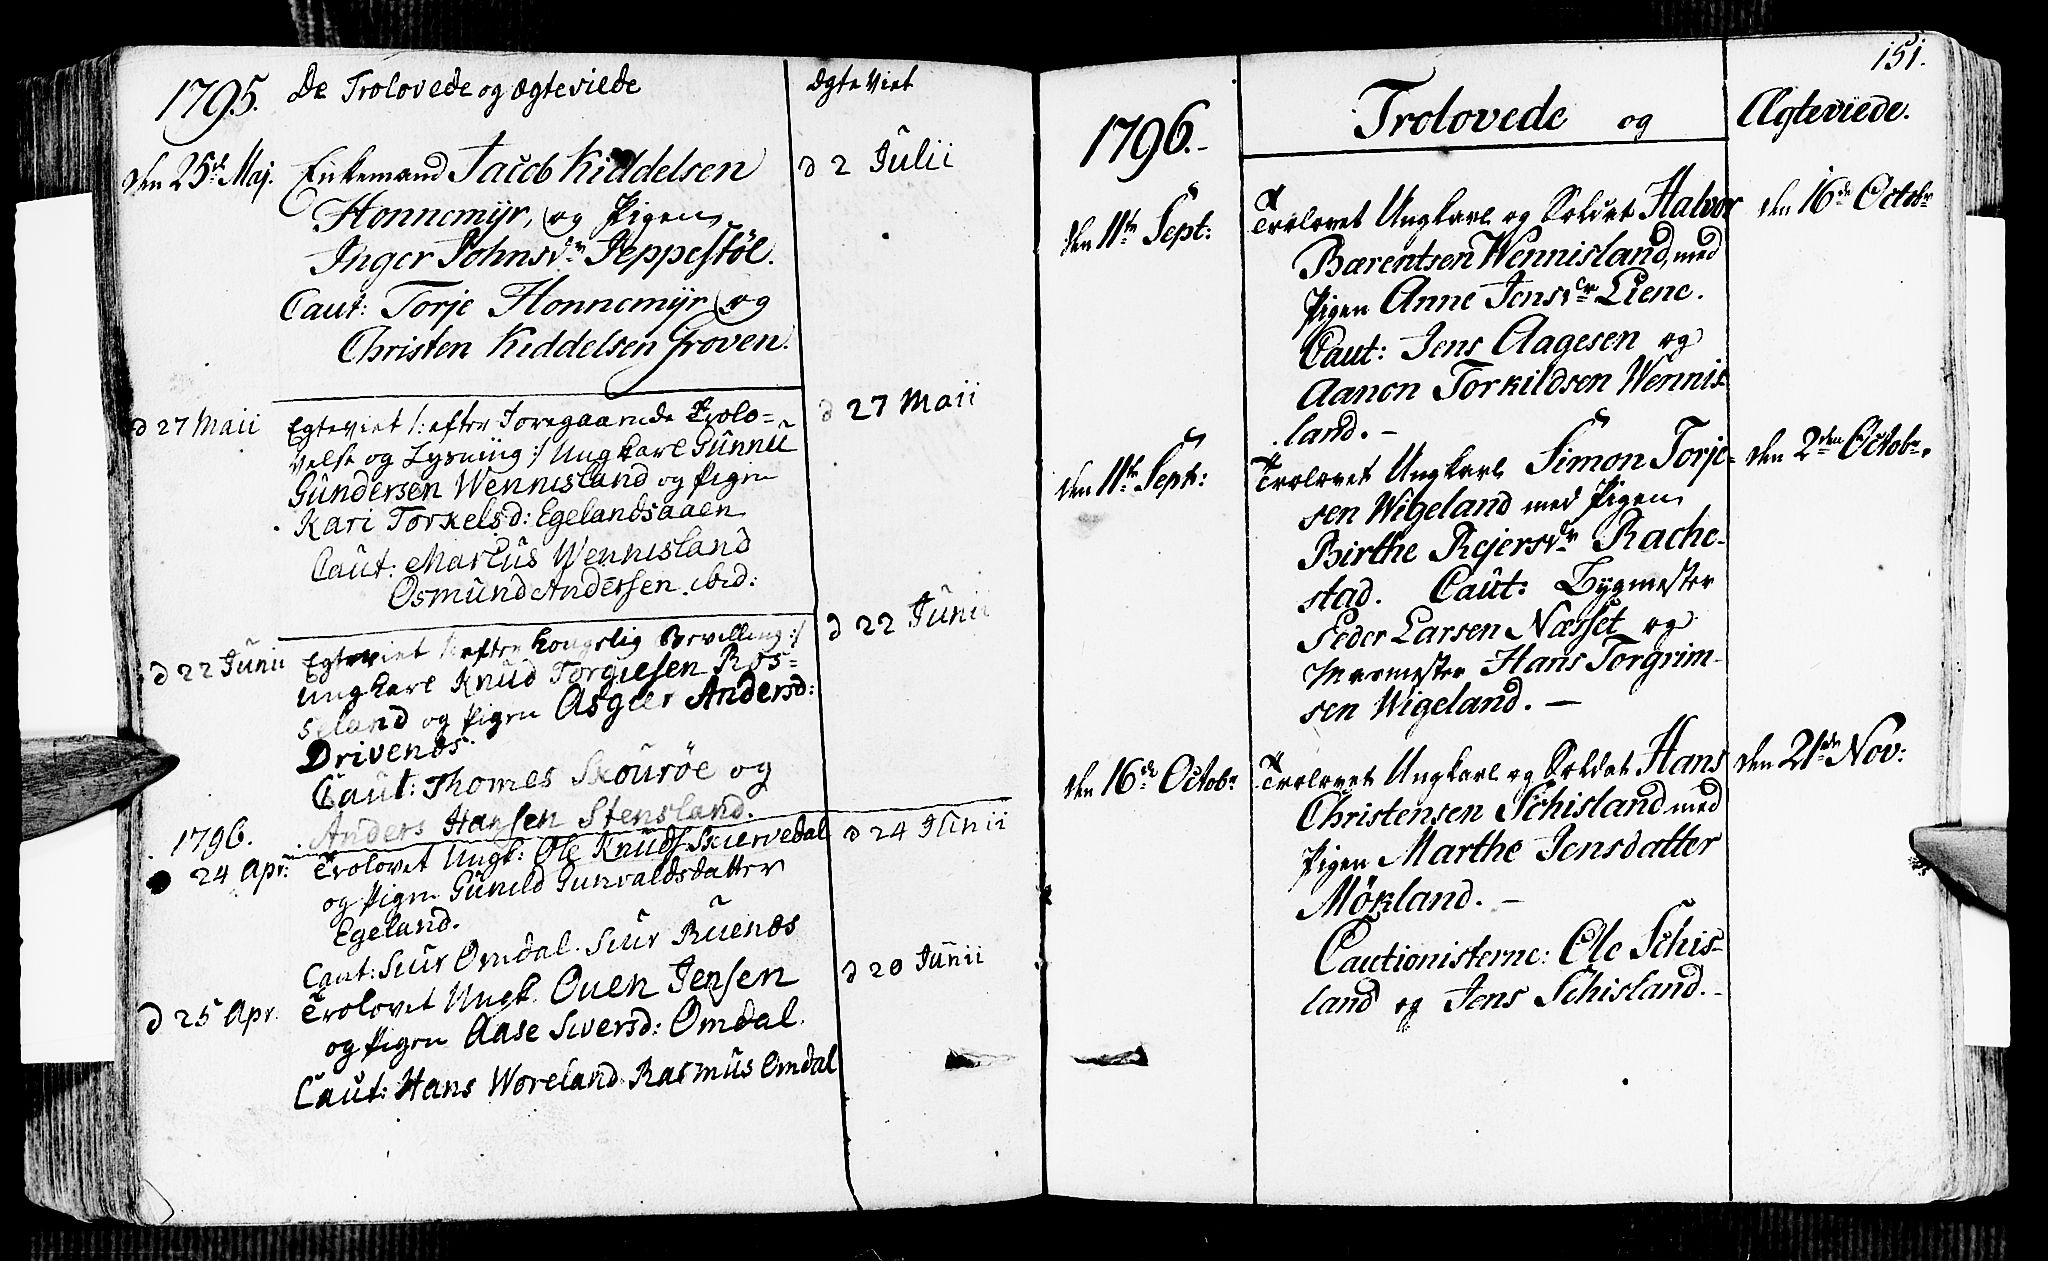 1795. De Trolovede og ægteviede ægteviet
den 25de Maj. Enkemand Jacob Kiddelsen d 2 Julii
Honnemÿr, og Pigen
Inger Johnsdr Peppestöl.
Caut: Torje Honnemÿr og
Christen Kiddelsen Groven.
d 27 Maii Egteviet /: efter Foregaaende Trolo= d 27 Maii
velse og Lysning :/ Ungkarl Gunnu
Gundersen Wennisland og Pigen
Kari Torkelsd: Egelandsaaen
Caut: Marcus Wennisland
Osmund Andersen ibid:
d 22 Junii Egteviet /: efter kongelig Bevilling :/ d 22 Junii
Ungkarl Knud Torgiesen Ros=
seland og Pigen Asgier Andersd:
Drivenæs.
Caut: Thomes Skouröe og
Anders Hansen Stensland.
1796.
24 Apr: Trolovet Ungk: Ole Knuds: Skiervedal d 24 Junii
og Pigen Guneld Gunvaldsdatter
Egeland.
Caut: Siur Omdal. Siur Ruenæs
d 25 Apr. Trolovet Ungk. Ouen Jensen d 20 Junii
og Pigen Aase Siversd: Omdal.
Caut: Hans Woreland Rasmus Omdal
151.
1796.- Trolovede og Ægteviede.
den 11te Sept: Trolovet Ungkarl og Soldat Halvor den 16de Octobr
Bærentsen Wennisland, med
Pigen Anne Jensdr Liene.
Caut: Jens Aagesen og
Aanon Torkildsen Wennis-
land. -
den 11te Sept: Trolovet Ungkarl Simon Torje- den 2den Octobr.
sen Wigeland med Pigen
Birthe Rejersdr Rache-
stad. Caut: Bygmester
Peder Larsen Næsset og
Murmester Hans Torgrim-
sen Wigeland. -
den 16de Octobr Trolovet Ungkarl og Soldat Hans den 21de Nov:
Christensen Schisland med
Pigen Marthe Jensdatter
Mökland. -
Cautionisterne: Ole Schis-
land og Jens Schisland. -